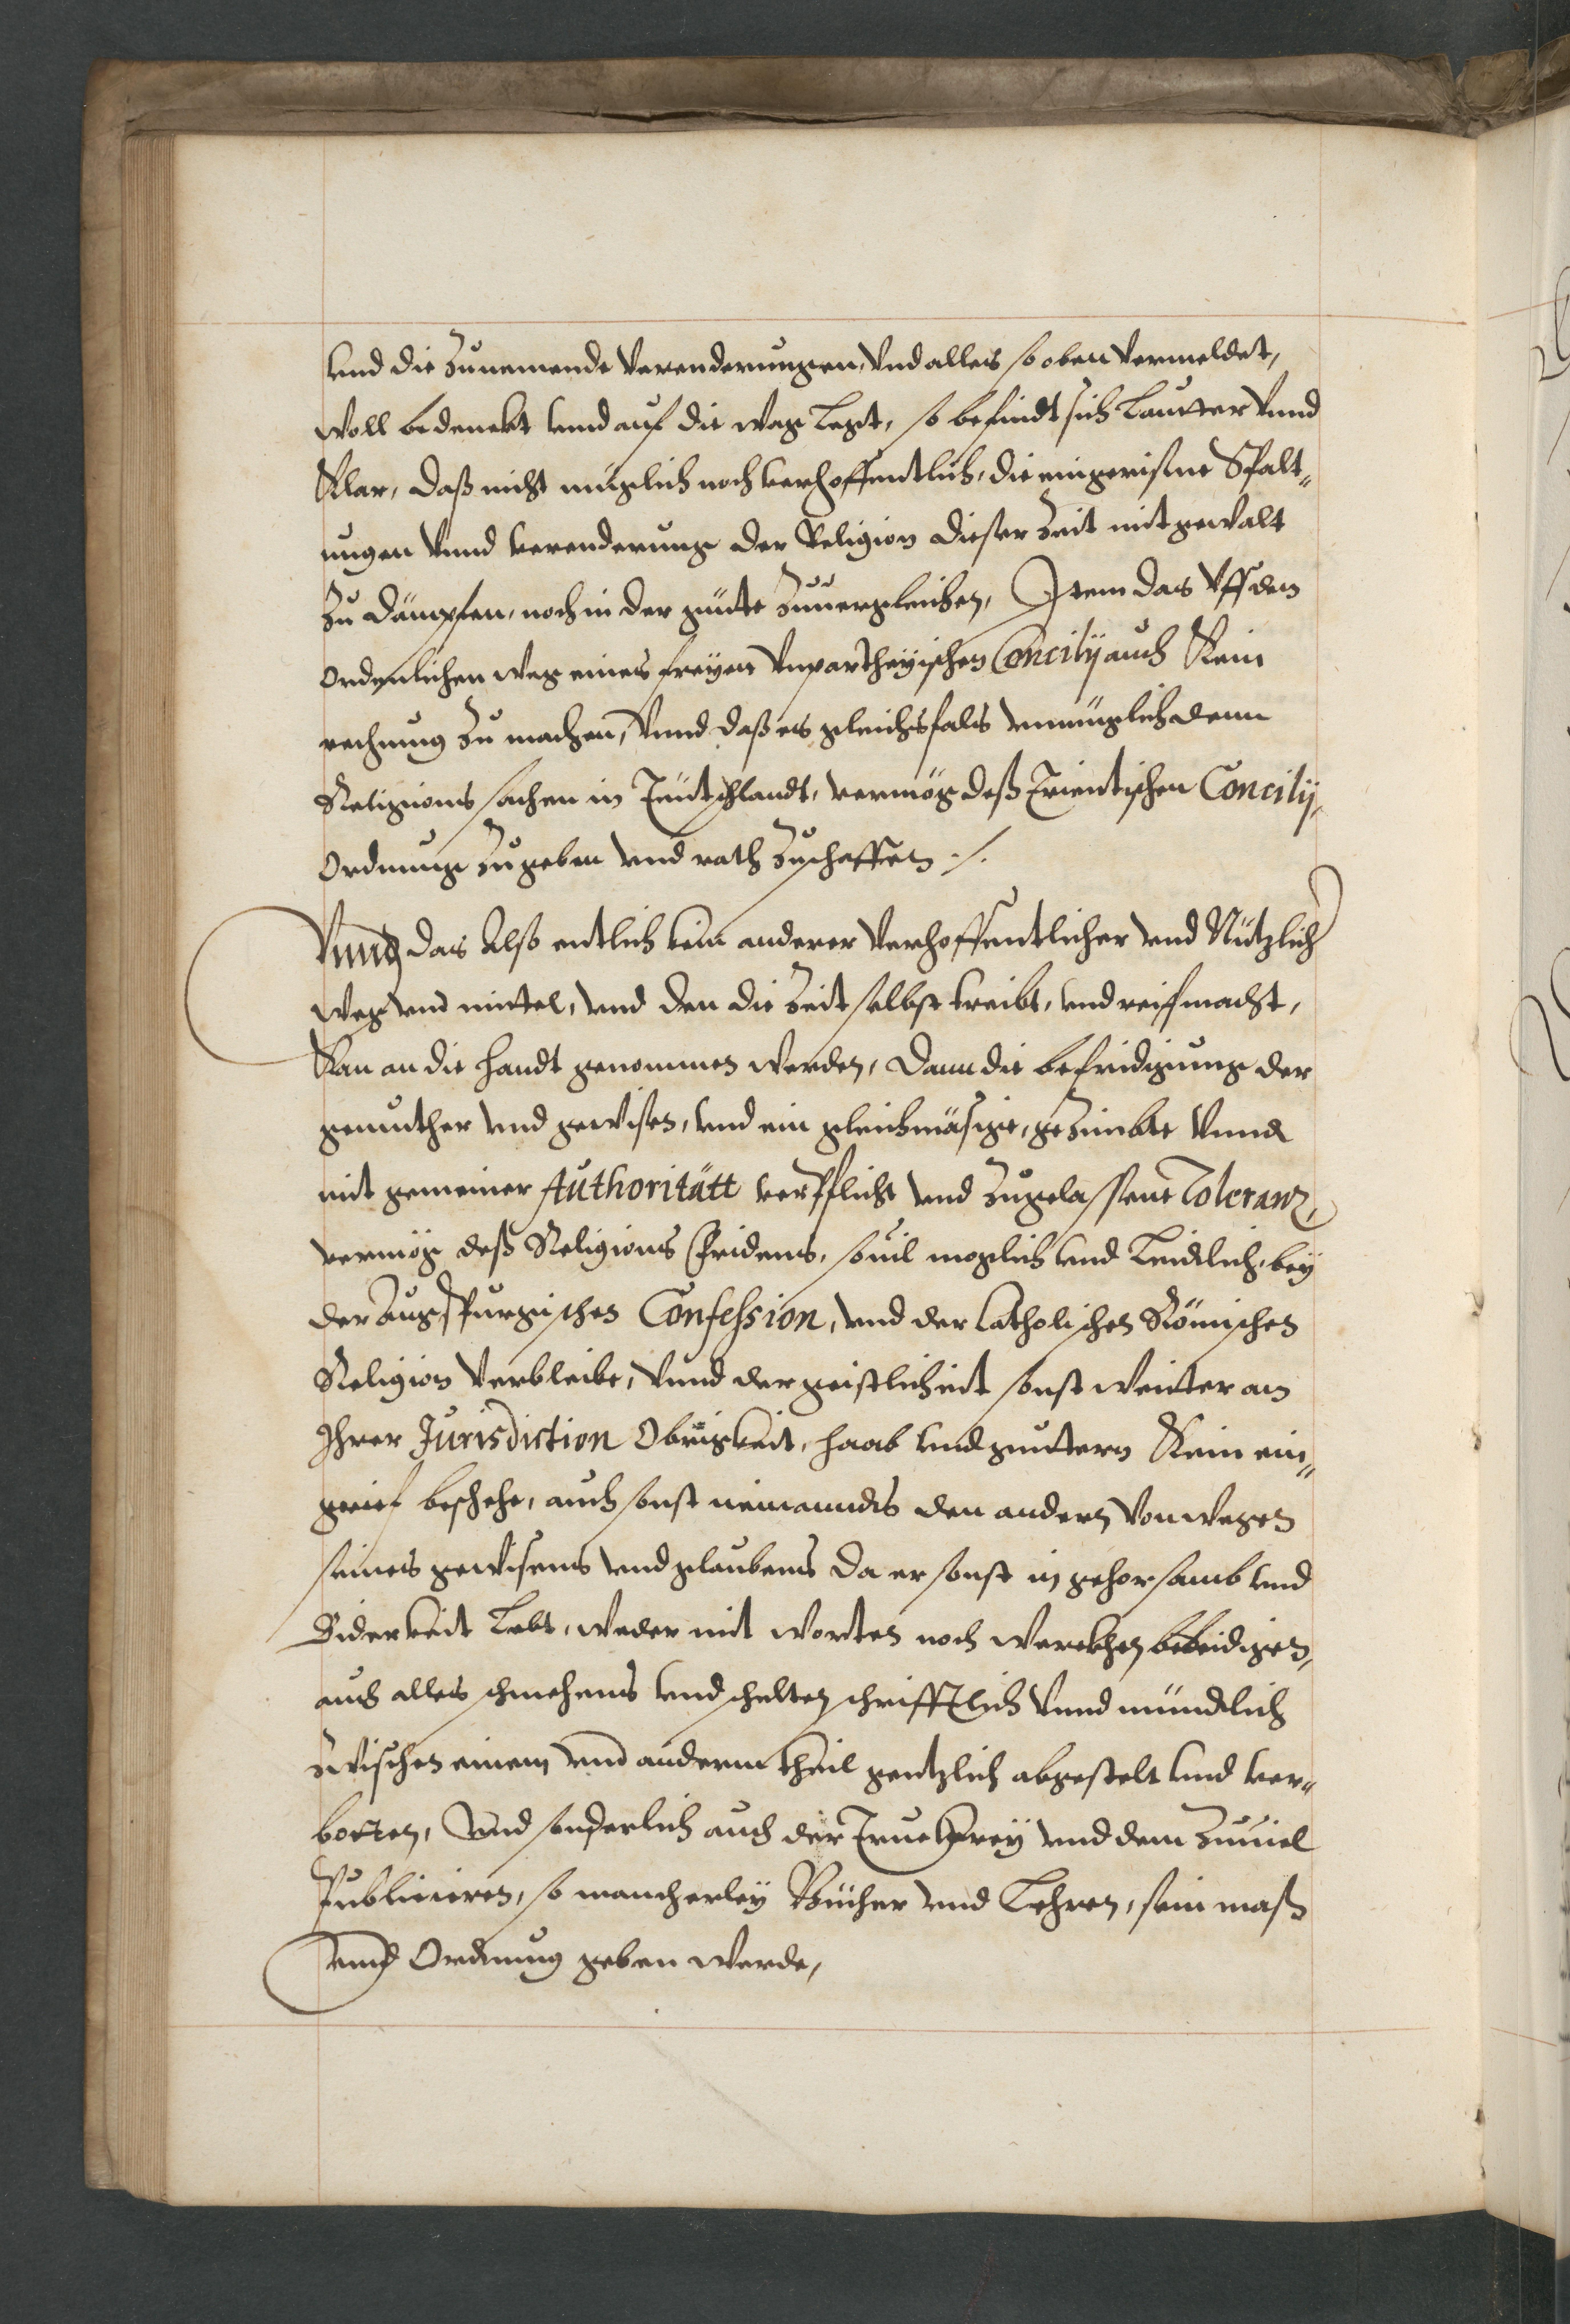 vnd die zunemende verenderungen, vnd alles so oben vermeldet,
woll bedenckt vnd auf die wag legt, so befindt sich lautter vnnd
klar, daß nicht müglich noch verhoffentlich, die eingerißne Spalt„
ungen vnnd verenderung der Religion dieser Zeit mit gewalt
zu dämpfen, noch in der güte zuuergleichen, Item das vff den
ordenlichen weg eines freyen vnpartheyischen Concilij auch kein
rechnung zu machen, vnnd daß es gleichsfals vnmüglich denn
Religions sachen in Teutschlandt, vermög deß Trientischen Concilij,
ordnung zugeben vnd rath zuschaffen ./.
Vnnd das also entlich kein anderer verhoffentlicher vnd Nützlich
weg vnd mittel, vnd den die Zeit selbst treibt, vnd reiff macht,
kan an die handt genommen werden, dann die befridigung der
gemüther vnd gewißen, vnd ein gleichmäsige, gezimbte vnnd
mit gemeiner Authoritätt verpflicht vnd zugelassene Toleranz,
vermög deß Religions Fridens, souil moglich vnd leidlich, bey
der Augspurgischen Confession, vnd der Catholischen Römischen
Religion verbleibe, vnnd der geistlicheit sonst weitter an
Ihrer Jurisdiction Obrigkeit, haab vnd güettern kein ein„
grief beschehe, auch sonst niemandts den andern von wegen
seines gewisens vnd glaubens da er sonst in gehorsamb vnd
Biderkeit lebt, weder mit worten noch werckhen beleidigen,
auch alles schmehens vnd schelten schrifftlich vnnd mündlich
zwischen einem vnd anderm theil gentzlich abgestelt vnd ver„
botten, vnd sonderlich auch der Truckerey vnd dem zuuiel
Publicieren, so mancherley Bücher vnd Lehren, sein maß
vnnd Ordnung geben werde,